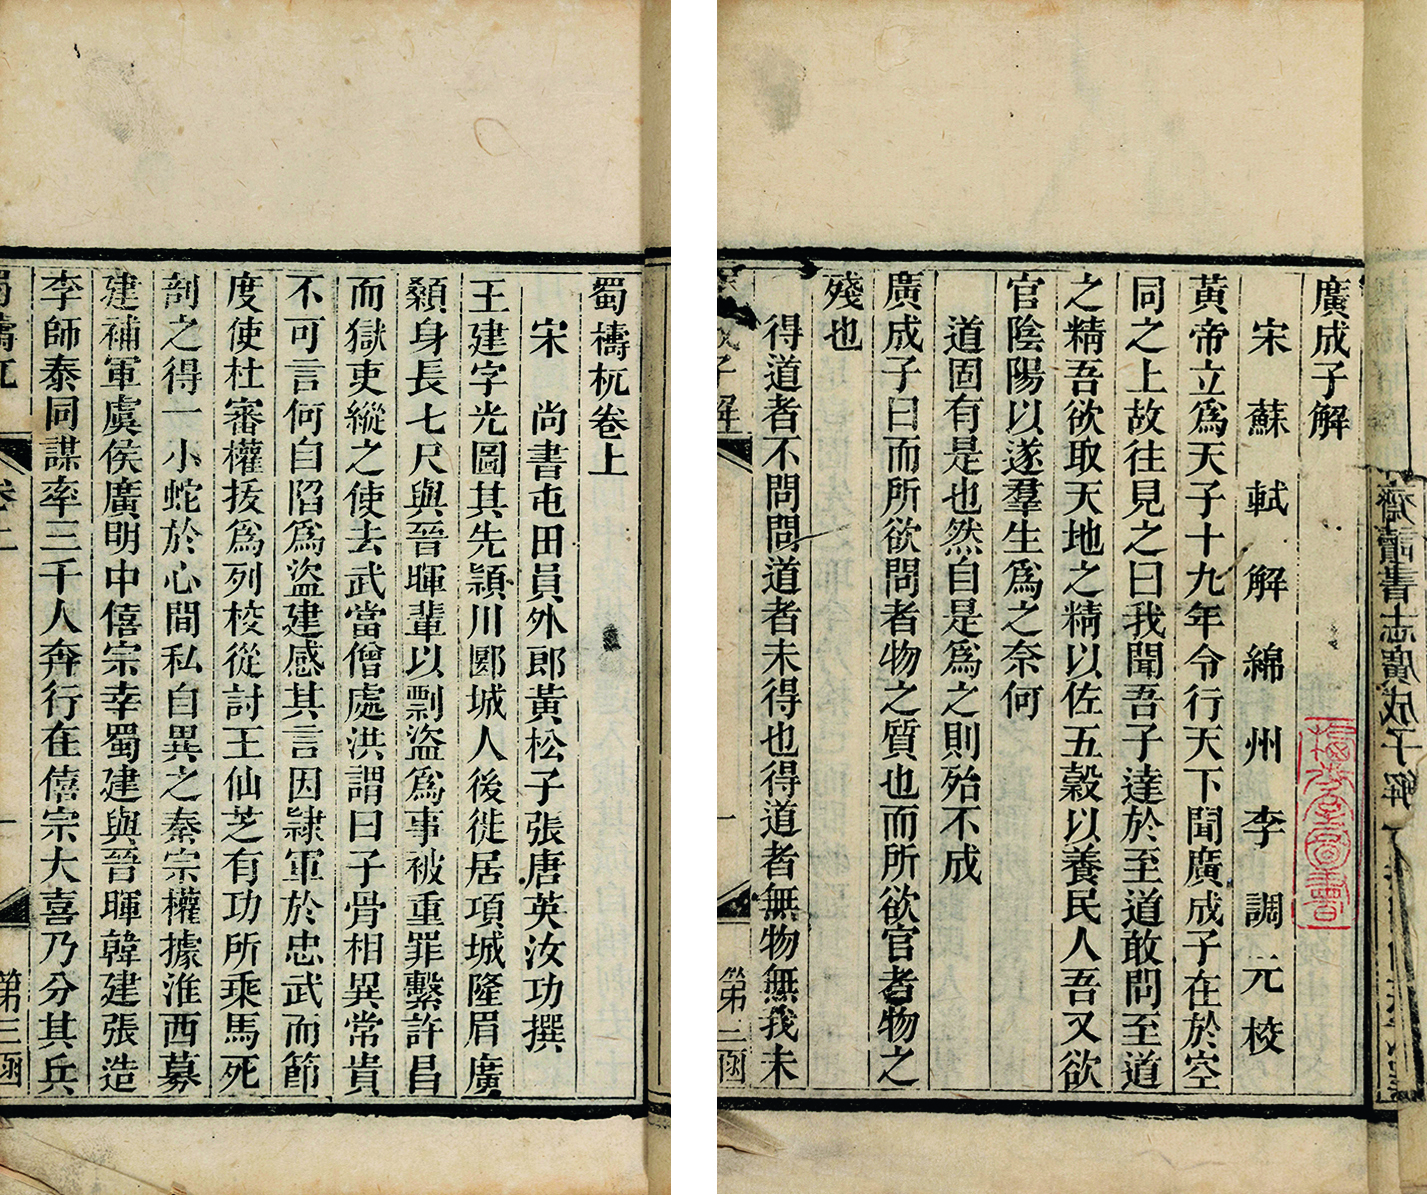 廣成子解
宋蘇軾解綿州李調元校
黃帝立爲天子十九年令行天下聞廣成子在於空
同之上故往見之曰我聞吾子達於至道敢問至道
之精吾欲取天地之精以佐五穀以養民人吾又欲
官陰陽以遂羣生爲之奈何
道固有是也然自是爲之則殆不成
廣成子曰而所欲問者物之質也而所欲官者物之
殘也
得道者不問問道者未得也得道者無物無我未
成子解
一
第二函
齋讀書志廣成子解
蜀檮杌卷上
宋尚書屯田員外郎黃松子張唐英汝功撰
王建字光圖其先潁川郾城人後徙居項城隆眉廣
顙身長七尺與晉暉輩以剽盜爲事被重罪繫許昌
而獄吏縱之使去武當僧處洪謂曰子骨相異常貴
不可言何自陷爲盜建感其言因隸軍於忠武而節
度使杜審權拔爲列校從討王仙芝有功所乘馬死
剖之得一小蛇於心間私自異之秦宗權據淮西募
建補軍虞侯廣明中僖宗幸蜀建與晉暉韓建張造
李師泰同謀率三千人奔行在僖宗大喜乃分其兵
蜀檮杌
卷上
一
第三函